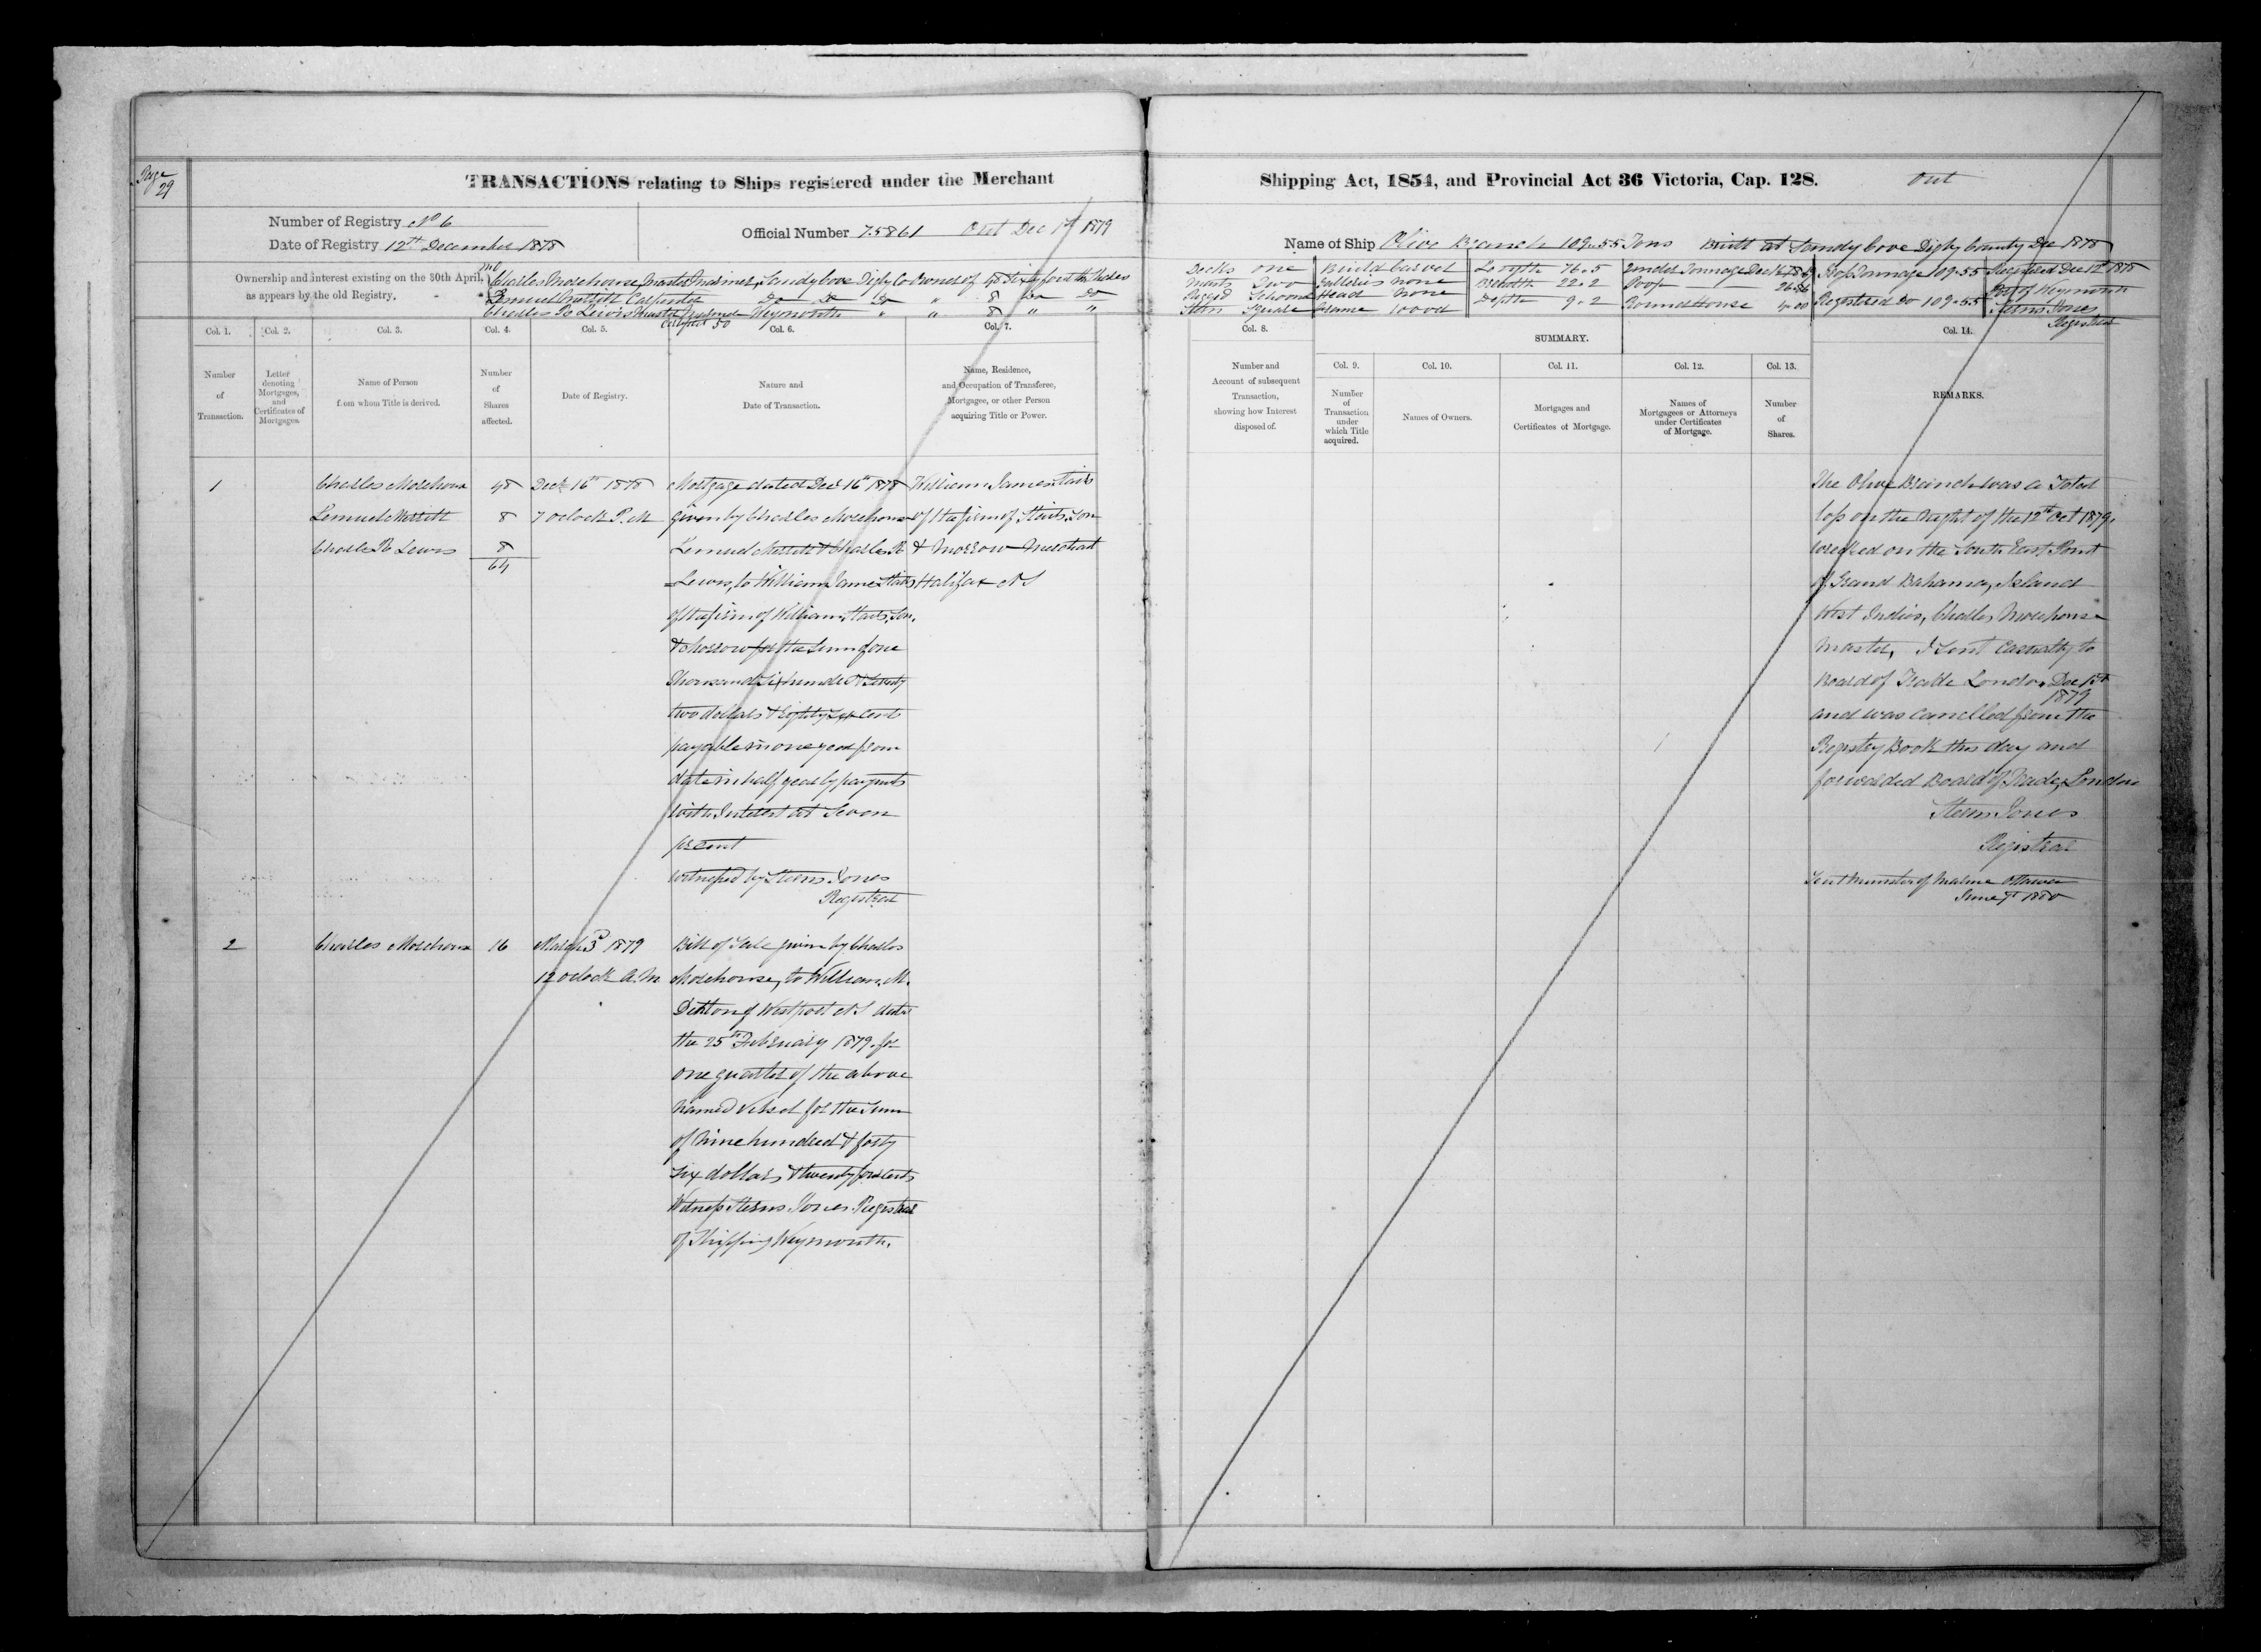 Page
29
TRANSACTIONS relating to Ships registered under the Merchant
Number of Registry No 6
Date of Registry 12th December 1878
Official Number 75861 Out Dec 1st 1879
Ownership and interest existing on the 30th April,
as appears by the old Registry.
Charles Morehouse, Master Mariner, Sandy Cove Digby Co Owner of 48 Sixty fourth Shares
Lemuel Carpenter Do Do Do " 8 Do Do
Charles R Lewis Master Mariner Weymouth " " 8 " "
Col. 1.
Col. 2.
Col. 3.
Col. 4.
Col. 5.
Col. 6.
Col. 7.
Number
of
Transaction.
Letter
denoting
Mortgages,
and
Certificates of
Mortgages.
Name of Person
from whom Title is derived.
Number
of
Shares
affected.
Date of Registry.
Nature and
Date of Transaction.
Name, Residence,
and Occupation of Transferee,
Mortgagee, or other Person
acquiring Title or Power.
1
Charles Morehouse 48
Lemuel 8
Charles R Lewis 8
64
Dec 16th 1878
7 oclock P.M
Mortgage dated Dec 16th 1878
given by Charles Morehouse
Lemuel & Charles R
Lewis, to William James Stairs
of the firm of William Stairs, Son,
& Morrow for the Sum of one
Thousand Six hundred & Seventy
two dollars & Eighty Six Cents
payable in one year from
date in half yearly payments
with Interest at Seven
pr cent
witnessed by Sterns Jones
Registrar
William James Stairs
of the firm of Stairs, Son
& Morrow Merchant
Halifax N S
2
Charles Morehouse 16
March 3d 1879
12 oclock A.M
Bill of Sale given by Charles
Morehouse, to William M.
Denton of Westport N S dated
the 25th February 1879. for
one quarter of the above
named Vessel for the Sum
of Nine hundred & forty
Six dollars & twenty four cents
Witness Sterns Jones Registrar
of Shipping Weymouth.
Shipping Act, 1854, and Provincial Act 36 Victoria, Cap. 128.
Out
Name of Ship Olive Branch 109.55 Tons Built at Sandy Cove Digby County Dec 1878
Decks one
Masts Two
Rigged Schooner
Stern Square
Build Carvel
Galleries none
Head none
Frame wood
Length 76.5
Breadth 22.2
Depth 9.2
Under Tonnage Deck
Poop
Round House 4.00
Gross Tonnage 109.55
Registered Do 109.55
Registered Dec 12th 1878
Port of Weymouth
Sterns Jones
Registrar
Col. 8.
SUMMARY.
Col. 14.
Col. 9.
Col. 10.
Col. 11.
Col. 12.
Col. 13.
Number and
Account of subsequent
Transaction,
showing how Interest
disposed of.
Number
of
Transaction
under
which Title
acquired.
Names of Owners.
Mortgages and
Certificates of Mortgage.
Names of
Mortgagees or Attorneys
under Certificates
of Mortgage.
Number
of
Shares.
REMARKS.
The Olive Branch was a Total
loss on the night of the 12th Oct 1879.
wrecked on the South East Point
of Grand Bahama, Island
West Indies, Charles Morehouse
Master, I Sent Casualty to
Board of Trade London Dec 1st
1879
and was cancelled from the
Registry Book this day and
forwarded Board of Trade, London
Sterns Jones
Registrar
Sent Minister of Marine Ottawa
June 1880